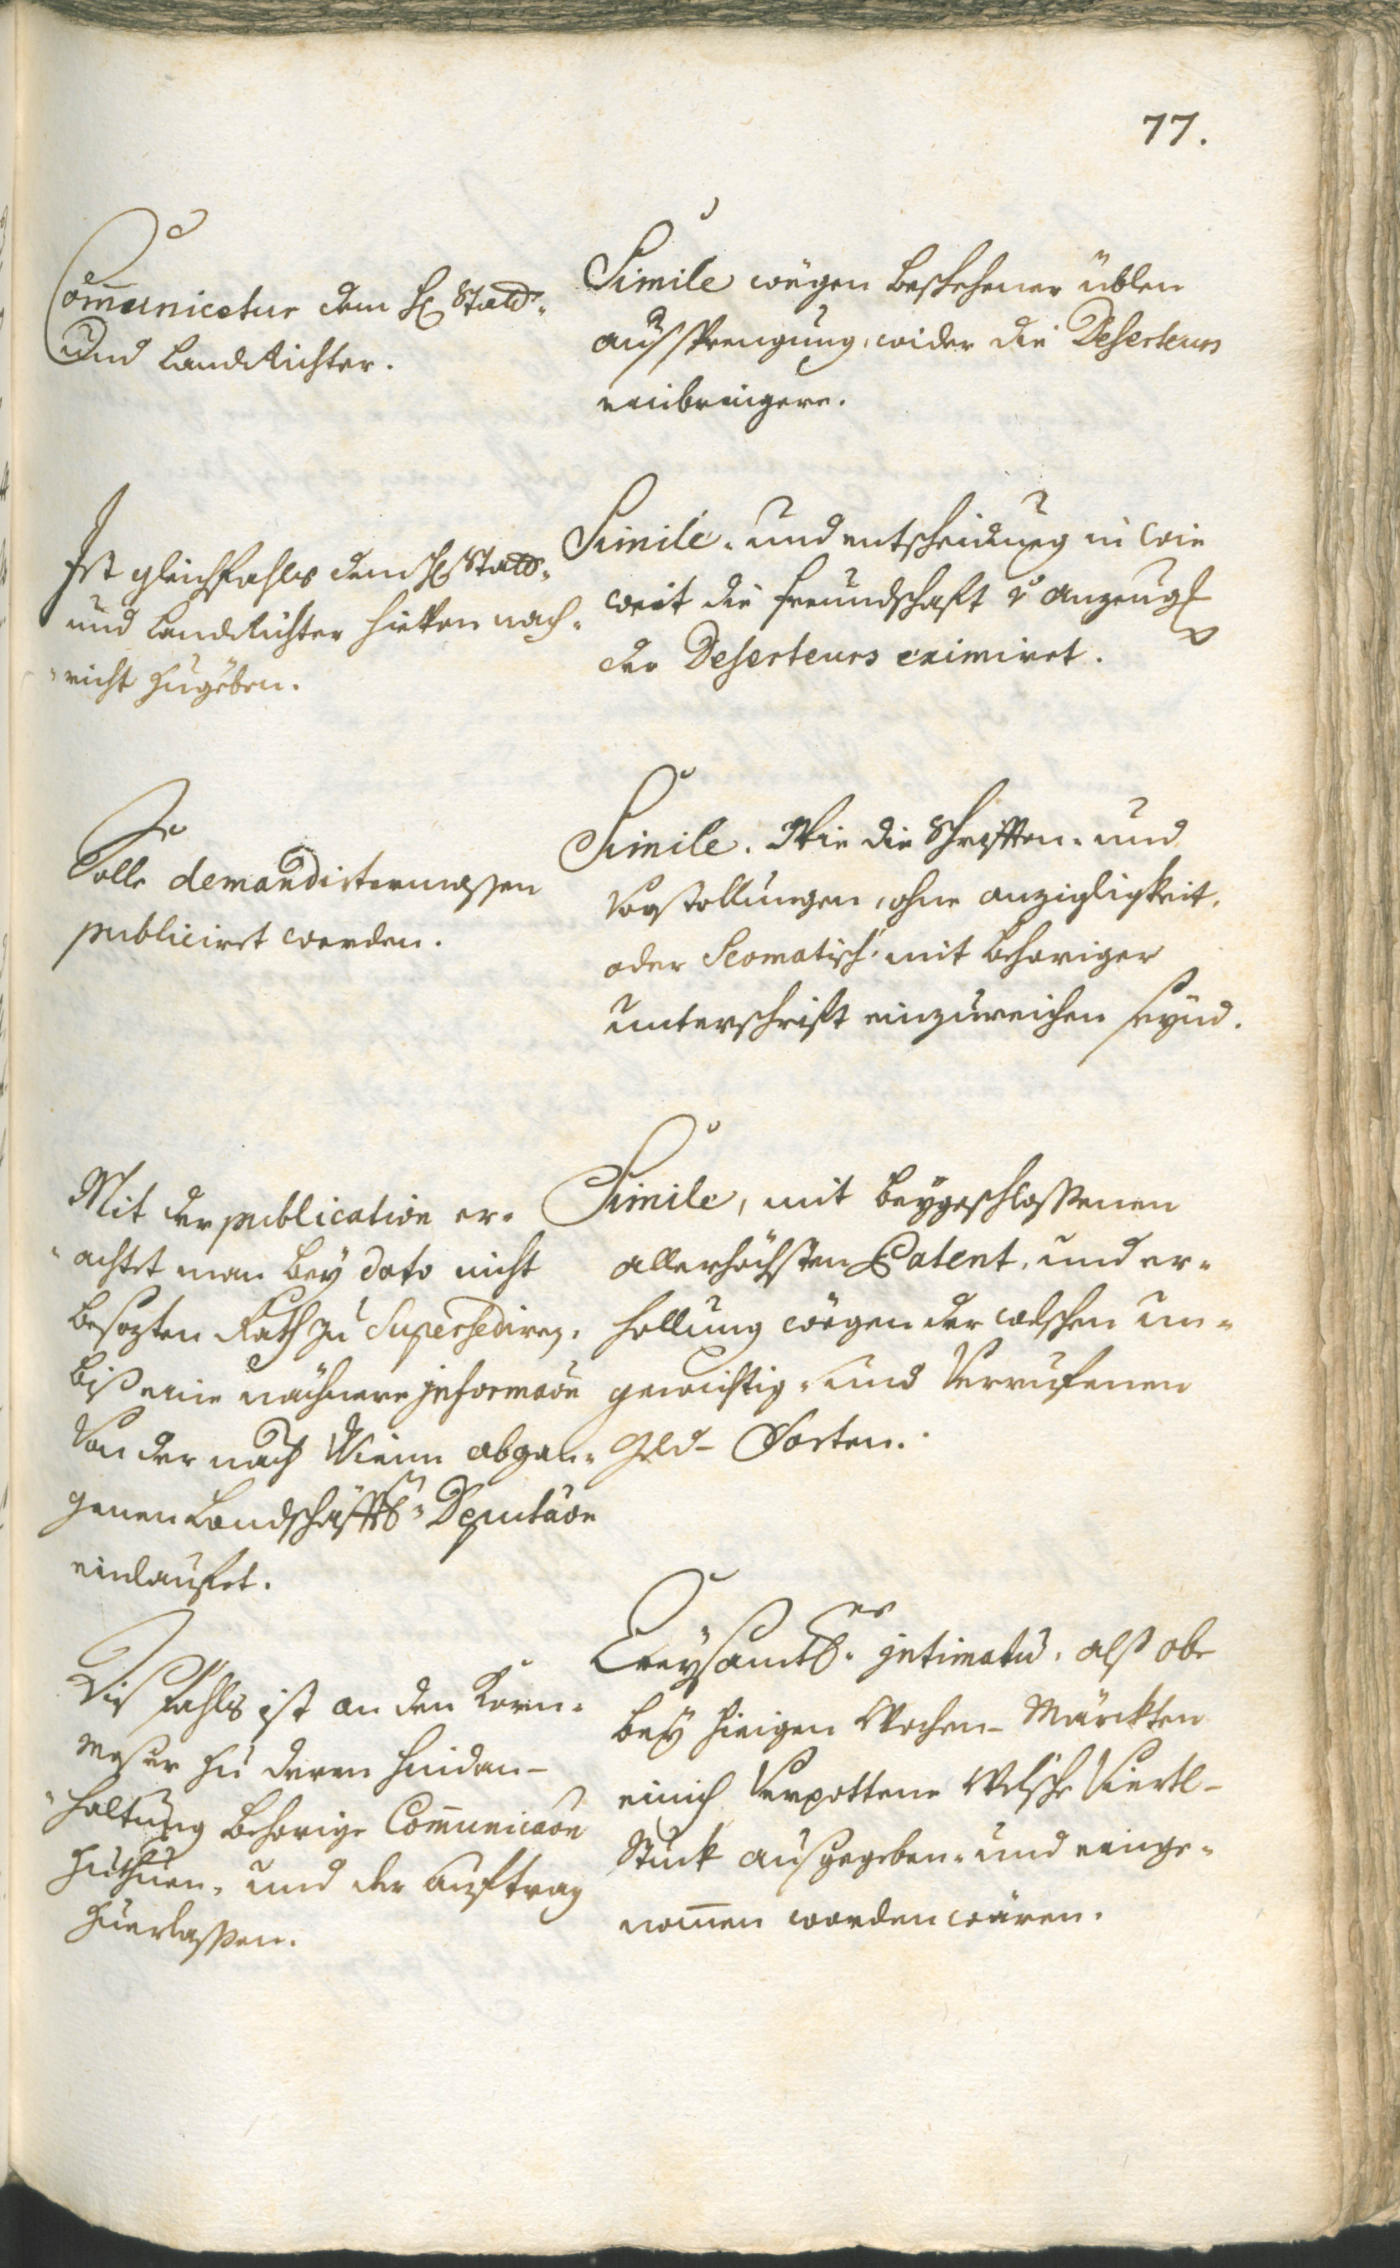 77.
Com̄unicetur dem H: Statt-
und LandRichter.
Simile wegen beschehener üblen
aussprengung, wider die Deserteurs
einbringere.
Ist gleichfahls dem H: Statt-
und LandRichter hievon nach-
richt zugeben.
Simile. und entscheidung in wie
weit die freundschaft
der Deserteurs eximiret.
Solle demandirtermassen
publiciret werden.
Simile. Wie die Schrifften- und
Vorstellungen, ohne anzigligkeit,
oder Scomatisch, mit behöriger
unterschrifft einzureichen seynd.
Mit der publication er-
achtet man bey dato nicht
besezten Rath zu Supersediren,
biß eine nähnere Informaōn
von der nach Wienn abgan-
genen Landschäffts-Deputaōn
einlauffet.
Simile, mit beygeschlossenen
allerhöchsten Patent, und er-
hollung wegen der welschen un-
gewichtig- und Verruefenen
Geld- Sorten.
Dis fahls ist an den Korn-
messer zu deren hindan-
haltung behörige Com̄unicaōn
zuthuen, und der auftrag
zuerlassen.
Creysambts- Intimatū, alß ob
bey hiesigen Wochen- Märckten
einich Verpottene Welsche Viertl-
Stuck außgegeben- und einge-
nom̄en worden wären.